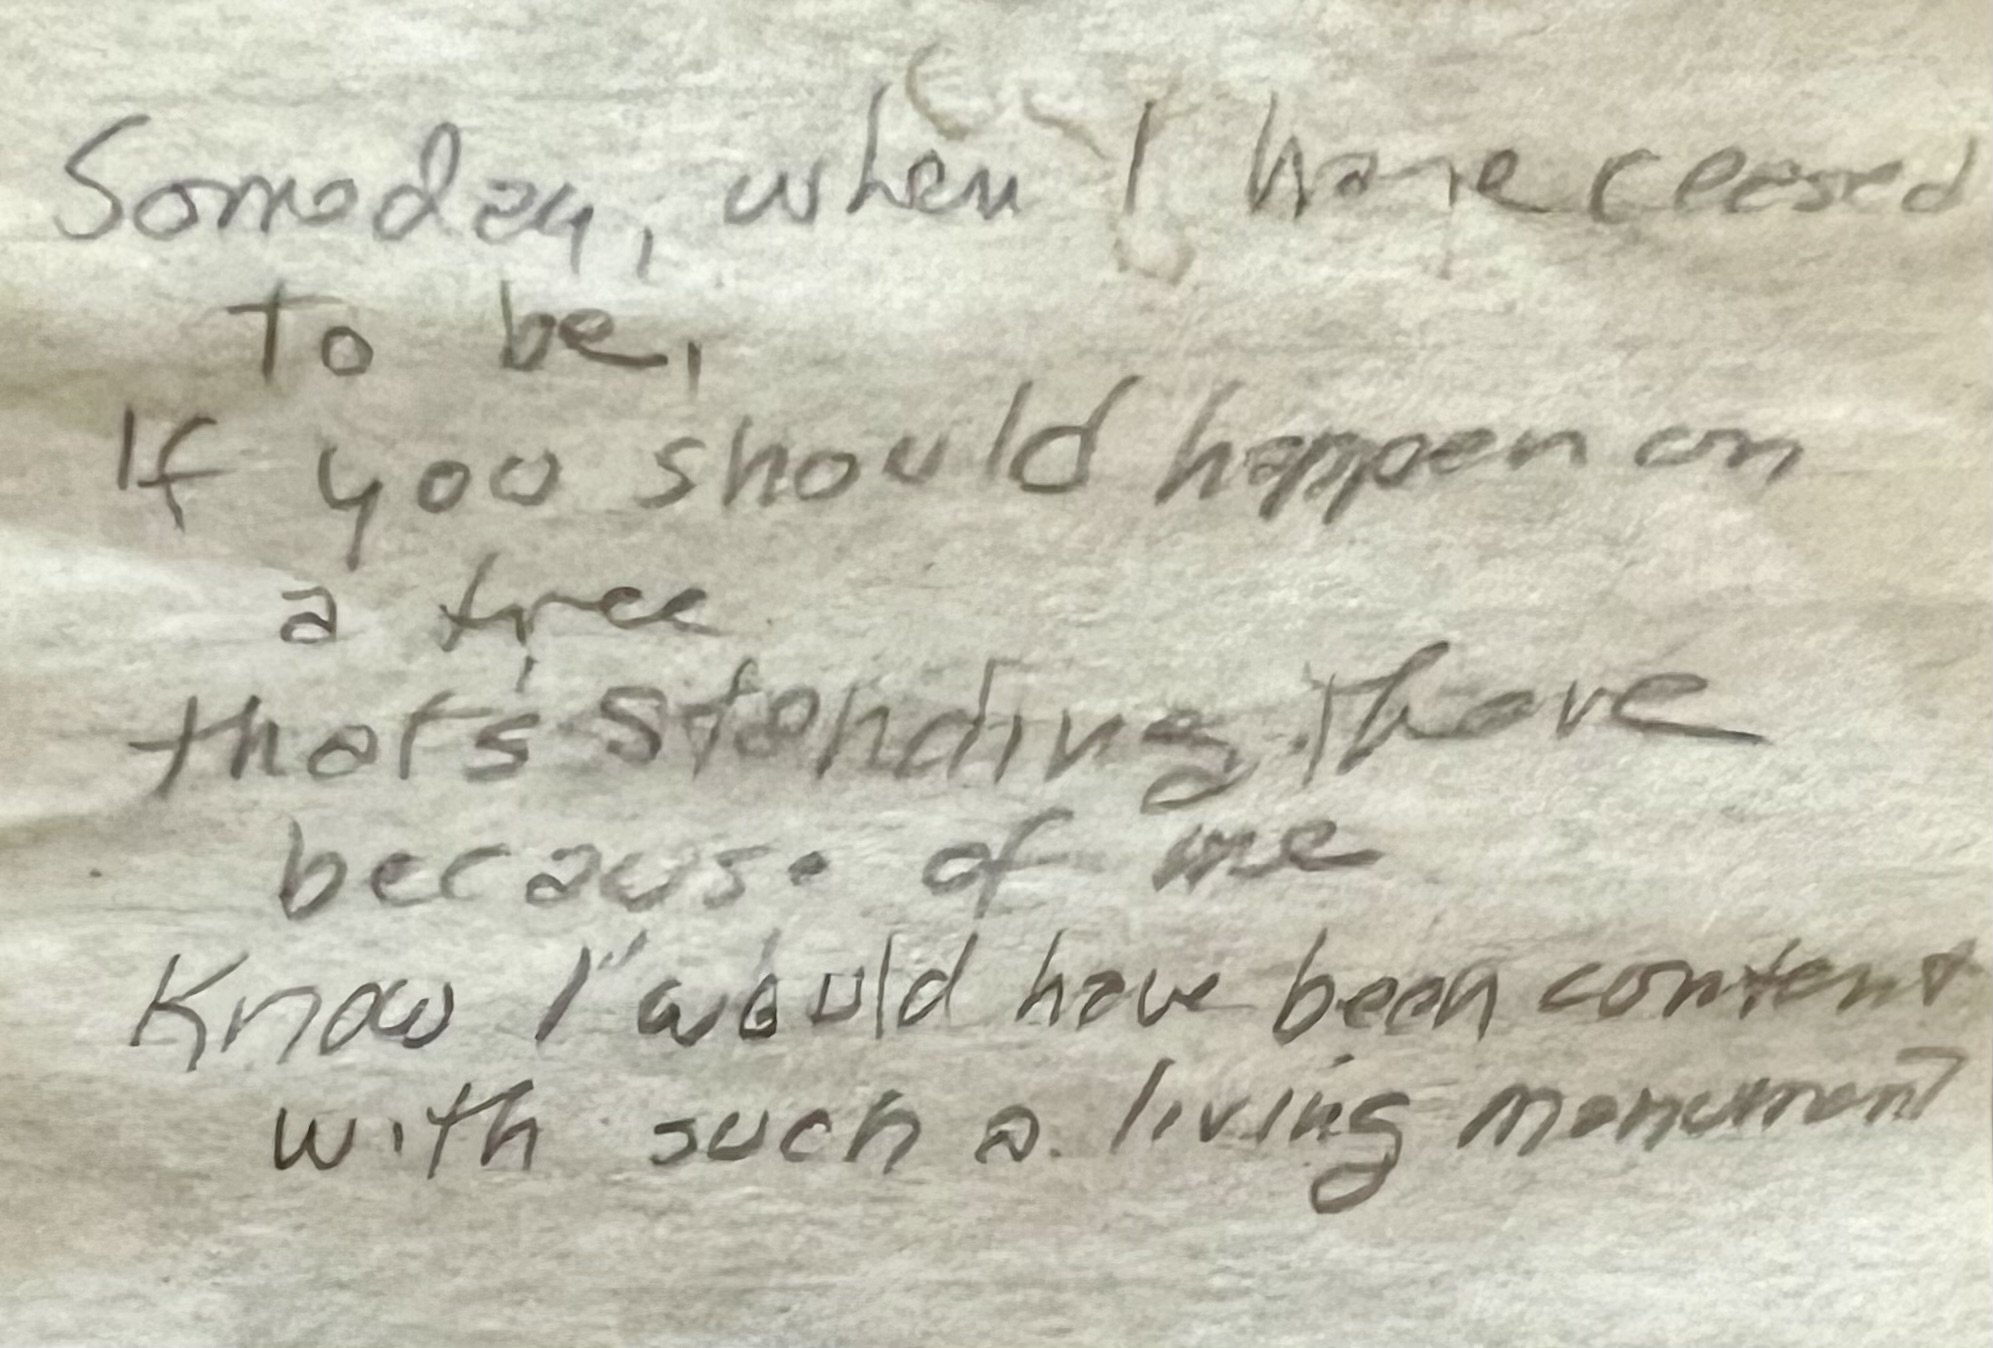 Someday, when I have ceased
to be,
If you should happen on
a tree
that's standing there
because of me
Know I would have been content
with such a living monument